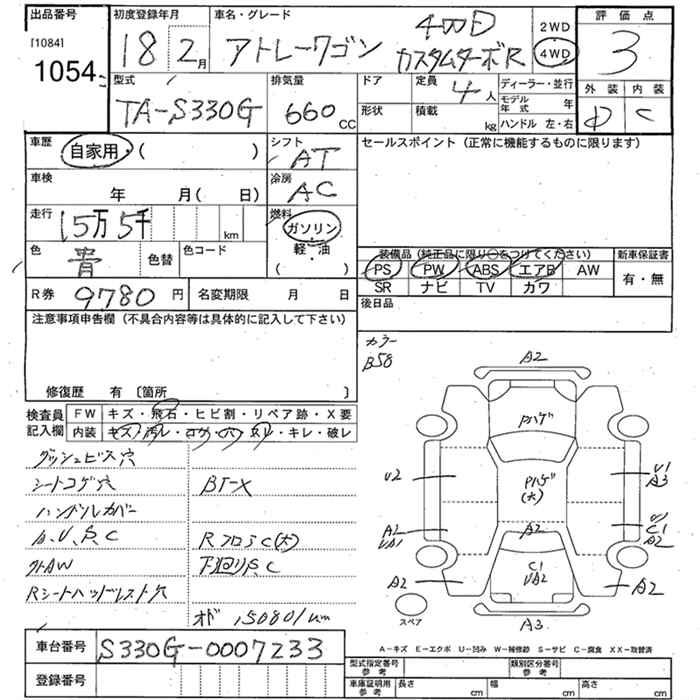 出品番号
[1084]
1054
初度登録年月
18 2月
車名・グレード
アトレーワゴン
4WD
カスタムターボR
2WD
4WD
評価点
3
外装 内装
D C
型式
TA-S330G
排気量
660 CC
ドア
形状
定員
4人
積載
kg
ディーラー・並行
モデル年式 年
ハンドル 左・右
車歴
自家用・( )
シフト
AT
セールスポイント (正常に機能するものに限ります)
車検
年 月( 日)
冷房
AC
走行
15万5千 km
燃料
ガソリン
・
軽・油
( )
色
青
色替
色コード
装備品 (純正品に限り○をつけてください)
新車保証書
PS PW ABS エアB AW
SR ナビ TV カワ
有・無
R券 9780 円
名変期限 月 日
後日品
注意事項申告欄 (不具合内容等は具体的に記入して下さい)
修復歴 有 〔箇所 〕
検査員記入欄
FW キズ・飛石・ヒビ割・リペア跡・X要
内装 キズ・汚レ・コゲ・穴・スレ・キレ・破レ
ダッシュビス穴
シートコゲ穴
BT-X
ハンドルカバー
A.U.S.C
RフロSC(大)
社外AW
下廻りS.C
Rシートハッドレスト穴
オド 150801km
カラー
B58
A2
Pハゲ
U2
Pハゲ
(大)
U1
A3
A2
UA1
A2
U1
C1
A2
C1
UA2
A2
A2
スペア
A3
A-キズ E-エクボ U-凹み W-補修跡 S-サビ C-腐食 XX-取替済
車台番号 S330G-0007233
登録番号
型式指定番号
参考
類別区分番号
参考
車庫証明用
参考
長さ cm
幅 cm
高さ cm